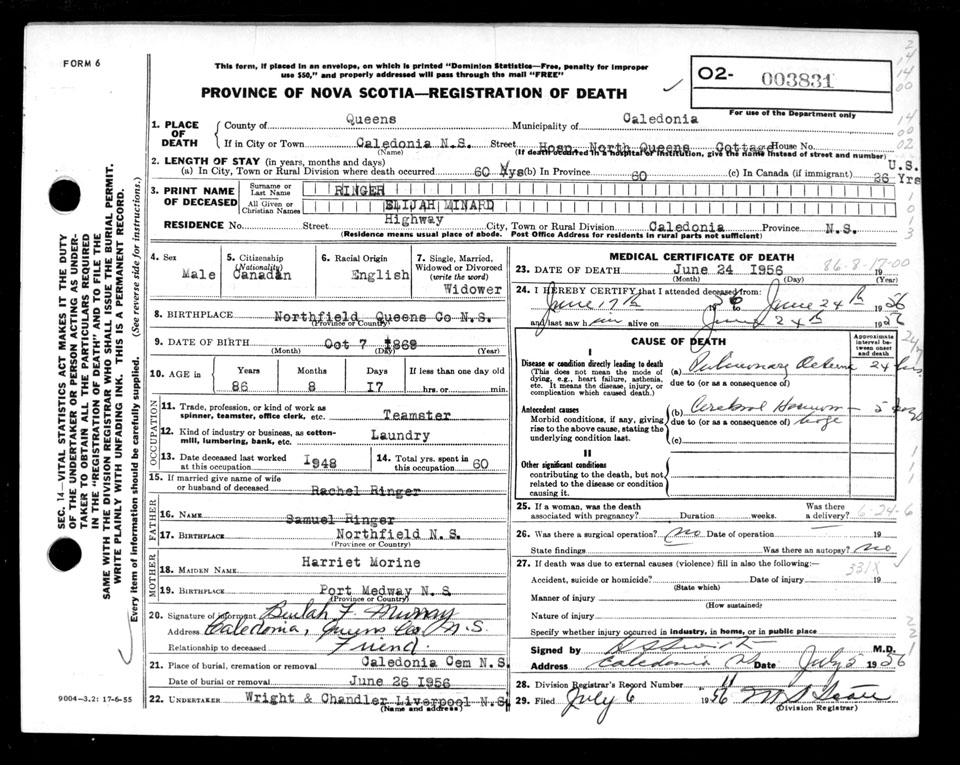 FORM 6
This form, if placed in an envelope, on which is printed "Dominion Statistics—Free, penalty for improper
use $50," and properly addressed will pass through the mail "FREE"
PROVINCE OF NOVA SCOTIA—REGISTRATION OF DEATH
02- 003831
For use of the Department only
1. PLACE OF DEATH
County of Queens Municipality of Caledonia
If in City or Town Caledonia N.S. Street Hosp. North Queens Cottage House No.
(Name) (If death occurred in a hospital or institution, give the name instead of street and number)
2. LENGTH OF STAY (in years, months and days) U.S.
(a) In City, Town or Rural Division where death occurred 60 Yys (b) In Province 60 (c) In Canada (if immigrant) 26 Yrs
3. PRINT NAME OF DECEASED
Surname or Last Name RINGER
All Given or Christian Names ELIJAH MINARD
RESIDENCE No. Street Highway City, Town or Rural Division Caledonia Province N.S.
(Residence means usual place of abode. Post Office Address for residents in rural parts not sufficient)
4. Sex Male
5. Citizenship (Nationality) Canadan
6. Racial Origin English
7. Single, Married, Widowed or Divorced (write the word) Widower
8. BIRTHPLACE Northfield Queens Co N.S.
(Province or Country)
9. DATE OF BIRTH Oct 7 1869
(Month) (Day) (Year)
10. AGE in Years Months Days If less than one day old
86 8 17 hrs. or min.
OCCUPATION
11. Trade, profession, or kind of work as spinner, teamster, office clerk, etc. Teamster
12. Kind of industry or business, as cotton-mill, lumbering, bank, etc. Laundry
13. Date deceased last worked at this occupation 1948
14. Total yrs. spent in this occupation 60
15. If married give name of wife or husband of deceased Rachel Ringer
FATHER
16. NAME Samuel Ringer
17. BIRTHPLACE Northfield N.S.
(Province or Country)
MOTHER
18. MAIDEN NAME Harriet Morine
19. BIRTHPLACE Port Medway N.S.
(Province or Country)
20. Signature of informant Beulah F. Murray
Address Caledonia, Queens Co. N.S.
Relationship to deceased Friend.
21. Place of burial, cremation or removal Caledonia Cem N.S.
Date of burial or removal June 26 1956
22. UNDERTAKER Wright & Chandler Liverpool N.S.
(Name and address)
MEDICAL CERTIFICATE OF DEATH
23. DATE OF DEATH June 24 1956 19
(Month) (Day) (Year)
86-8-17-00
24. I HEREBY CERTIFY that I attended deceased from:
June 17th 56 June 24th 1956
and last saw him alive on June 24th 1956
CAUSE OF DEATH
Approximate interval between onset and death
I
Disease or condition directly leading to death
(This does not mean the mode of dying, e.g., heart failure, asthenia, etc. It means the disease, injury, or complication which caused death.)
(a) Pulmonary Oedema 24 hrs
due to (or as a consequence of)
Antecedent causes
Morbid conditions, if any, giving rise to the above cause, stating the underlying condition last.
(b) Cerebral 5 days
due to (or as a consequence of)
(c)
II
Other significant conditions
contributing to the death, but not related to the disease or condition causing it.
25. If a woman, was the death associated with pregnancy? Duration weeks. Was there a delivery?
6-24-6
26. Was there a surgical operation? No Date of operation 19
State findings Was there an autopsy? No
27. If death was due to external causes (violence) fill in also the following:
331X
Accident, suicide or homicide? Date of injury 19
(State which)
Manner of injury
(How sustained)
Nature of injury
Specify whether injury occurred in industry, in home, or in public place
Signed by M.D.
Address Caledonia NS Date July 5 1956
28. Division Registrar's Record Number 11
29. Filed July 6 1956
(Division Registrar)
SEC. 14—VITAL STATISTICS ACT MAKES IT THE DUTY
OF THE UNDERTAKER OR PERSON ACTING AS UNDER-
TAKER TO OBTAIN ALL THE PARTICULARS REQUIRED
IN THE "REGISTRATION OF DEATH" AND TO FILE THE
SAME WITH THE DIVISION REGISTRAR WHO SHALL ISSUE THE BURIAL PERMIT.
WRITE PLAINLY WITH UNFADING INK. THIS IS A PERMANENT RECORD.
Every item of information should be carefully supplied. (See reverse side for instructions.)
9004—3.2: 17-6-55